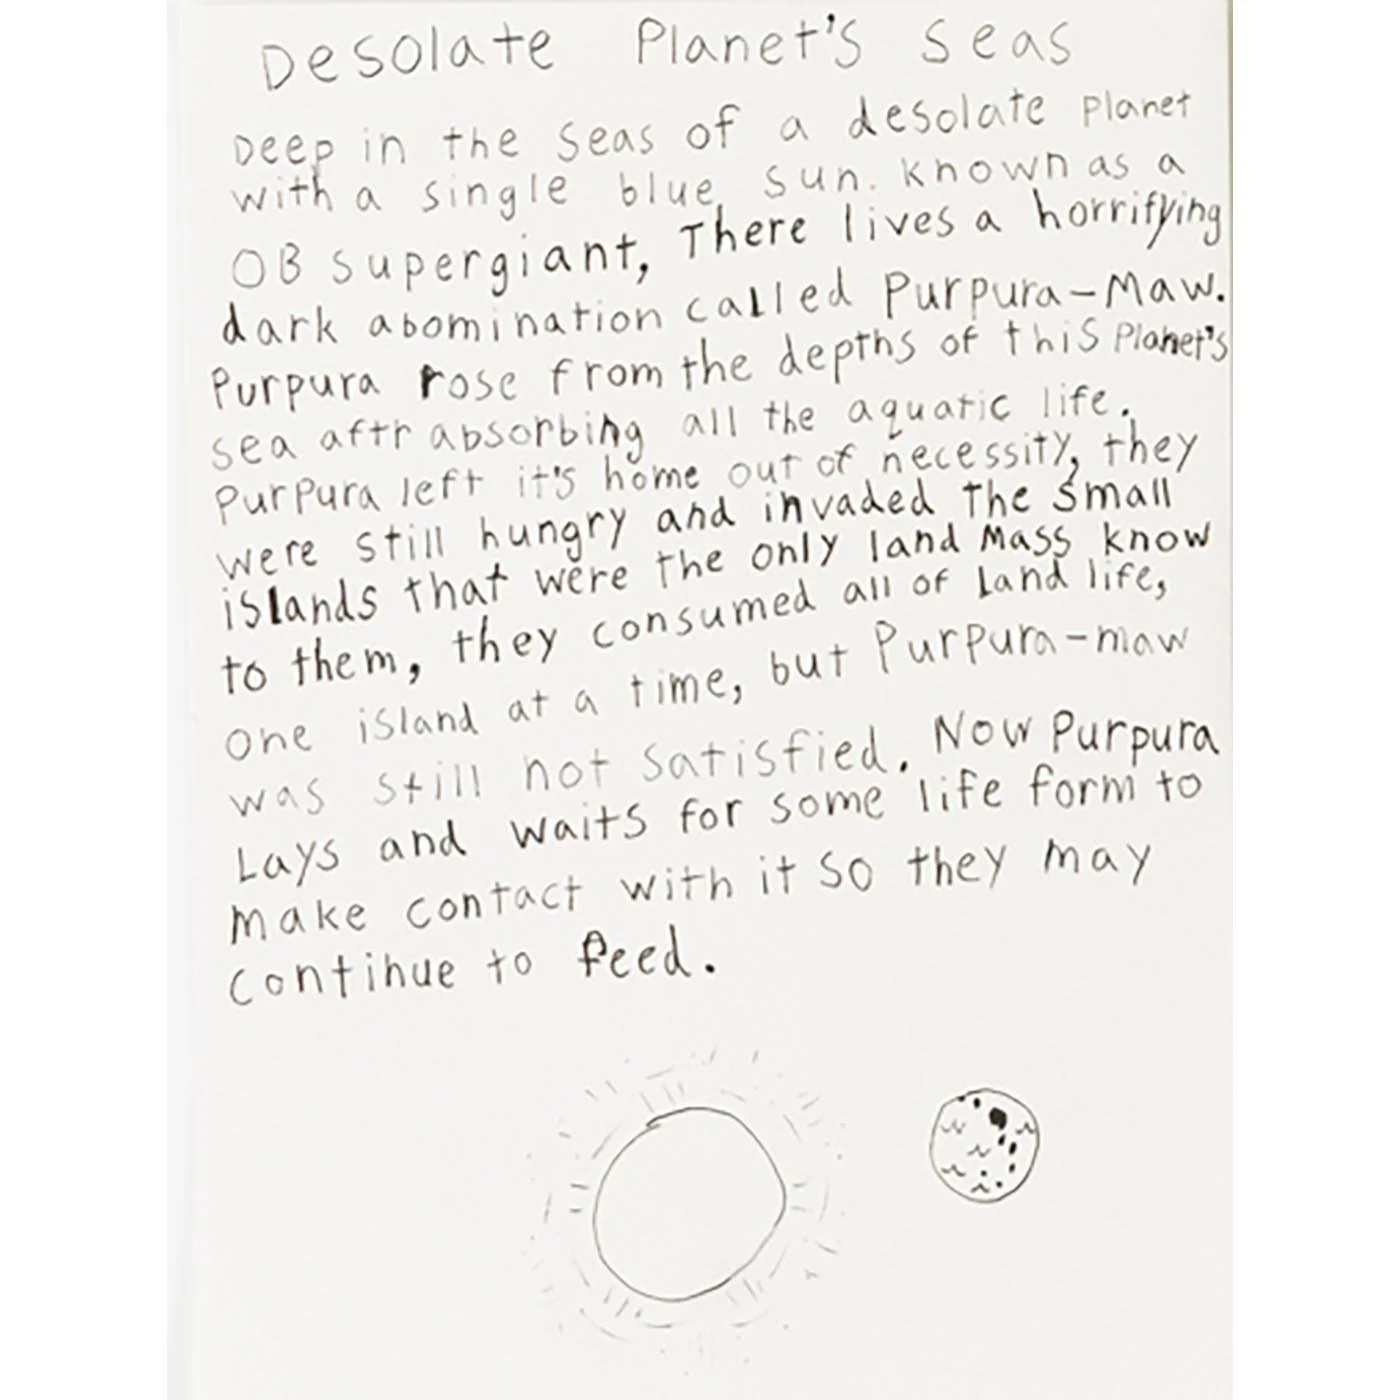 Desolate Planet's seas
Deep in the seas of a desolate planet
with a single blue sun. known as a
OB supergiant, There lives a horrifying
dark abomination called Purpura-Maw.
Purpura rose from the depths of this Planet's
sea aftr absorbing all the aquatic life.
Purpura left it's home out of necessity, they
were still hungry and invaded the small
islands that were the only land mass know
to them, they consumed all of land life,
one island at a time, but Purpura-maw
was still not satisfied. Now Purpura
Lays and waits for some life form to
make contact with it so they may
continue to feed.